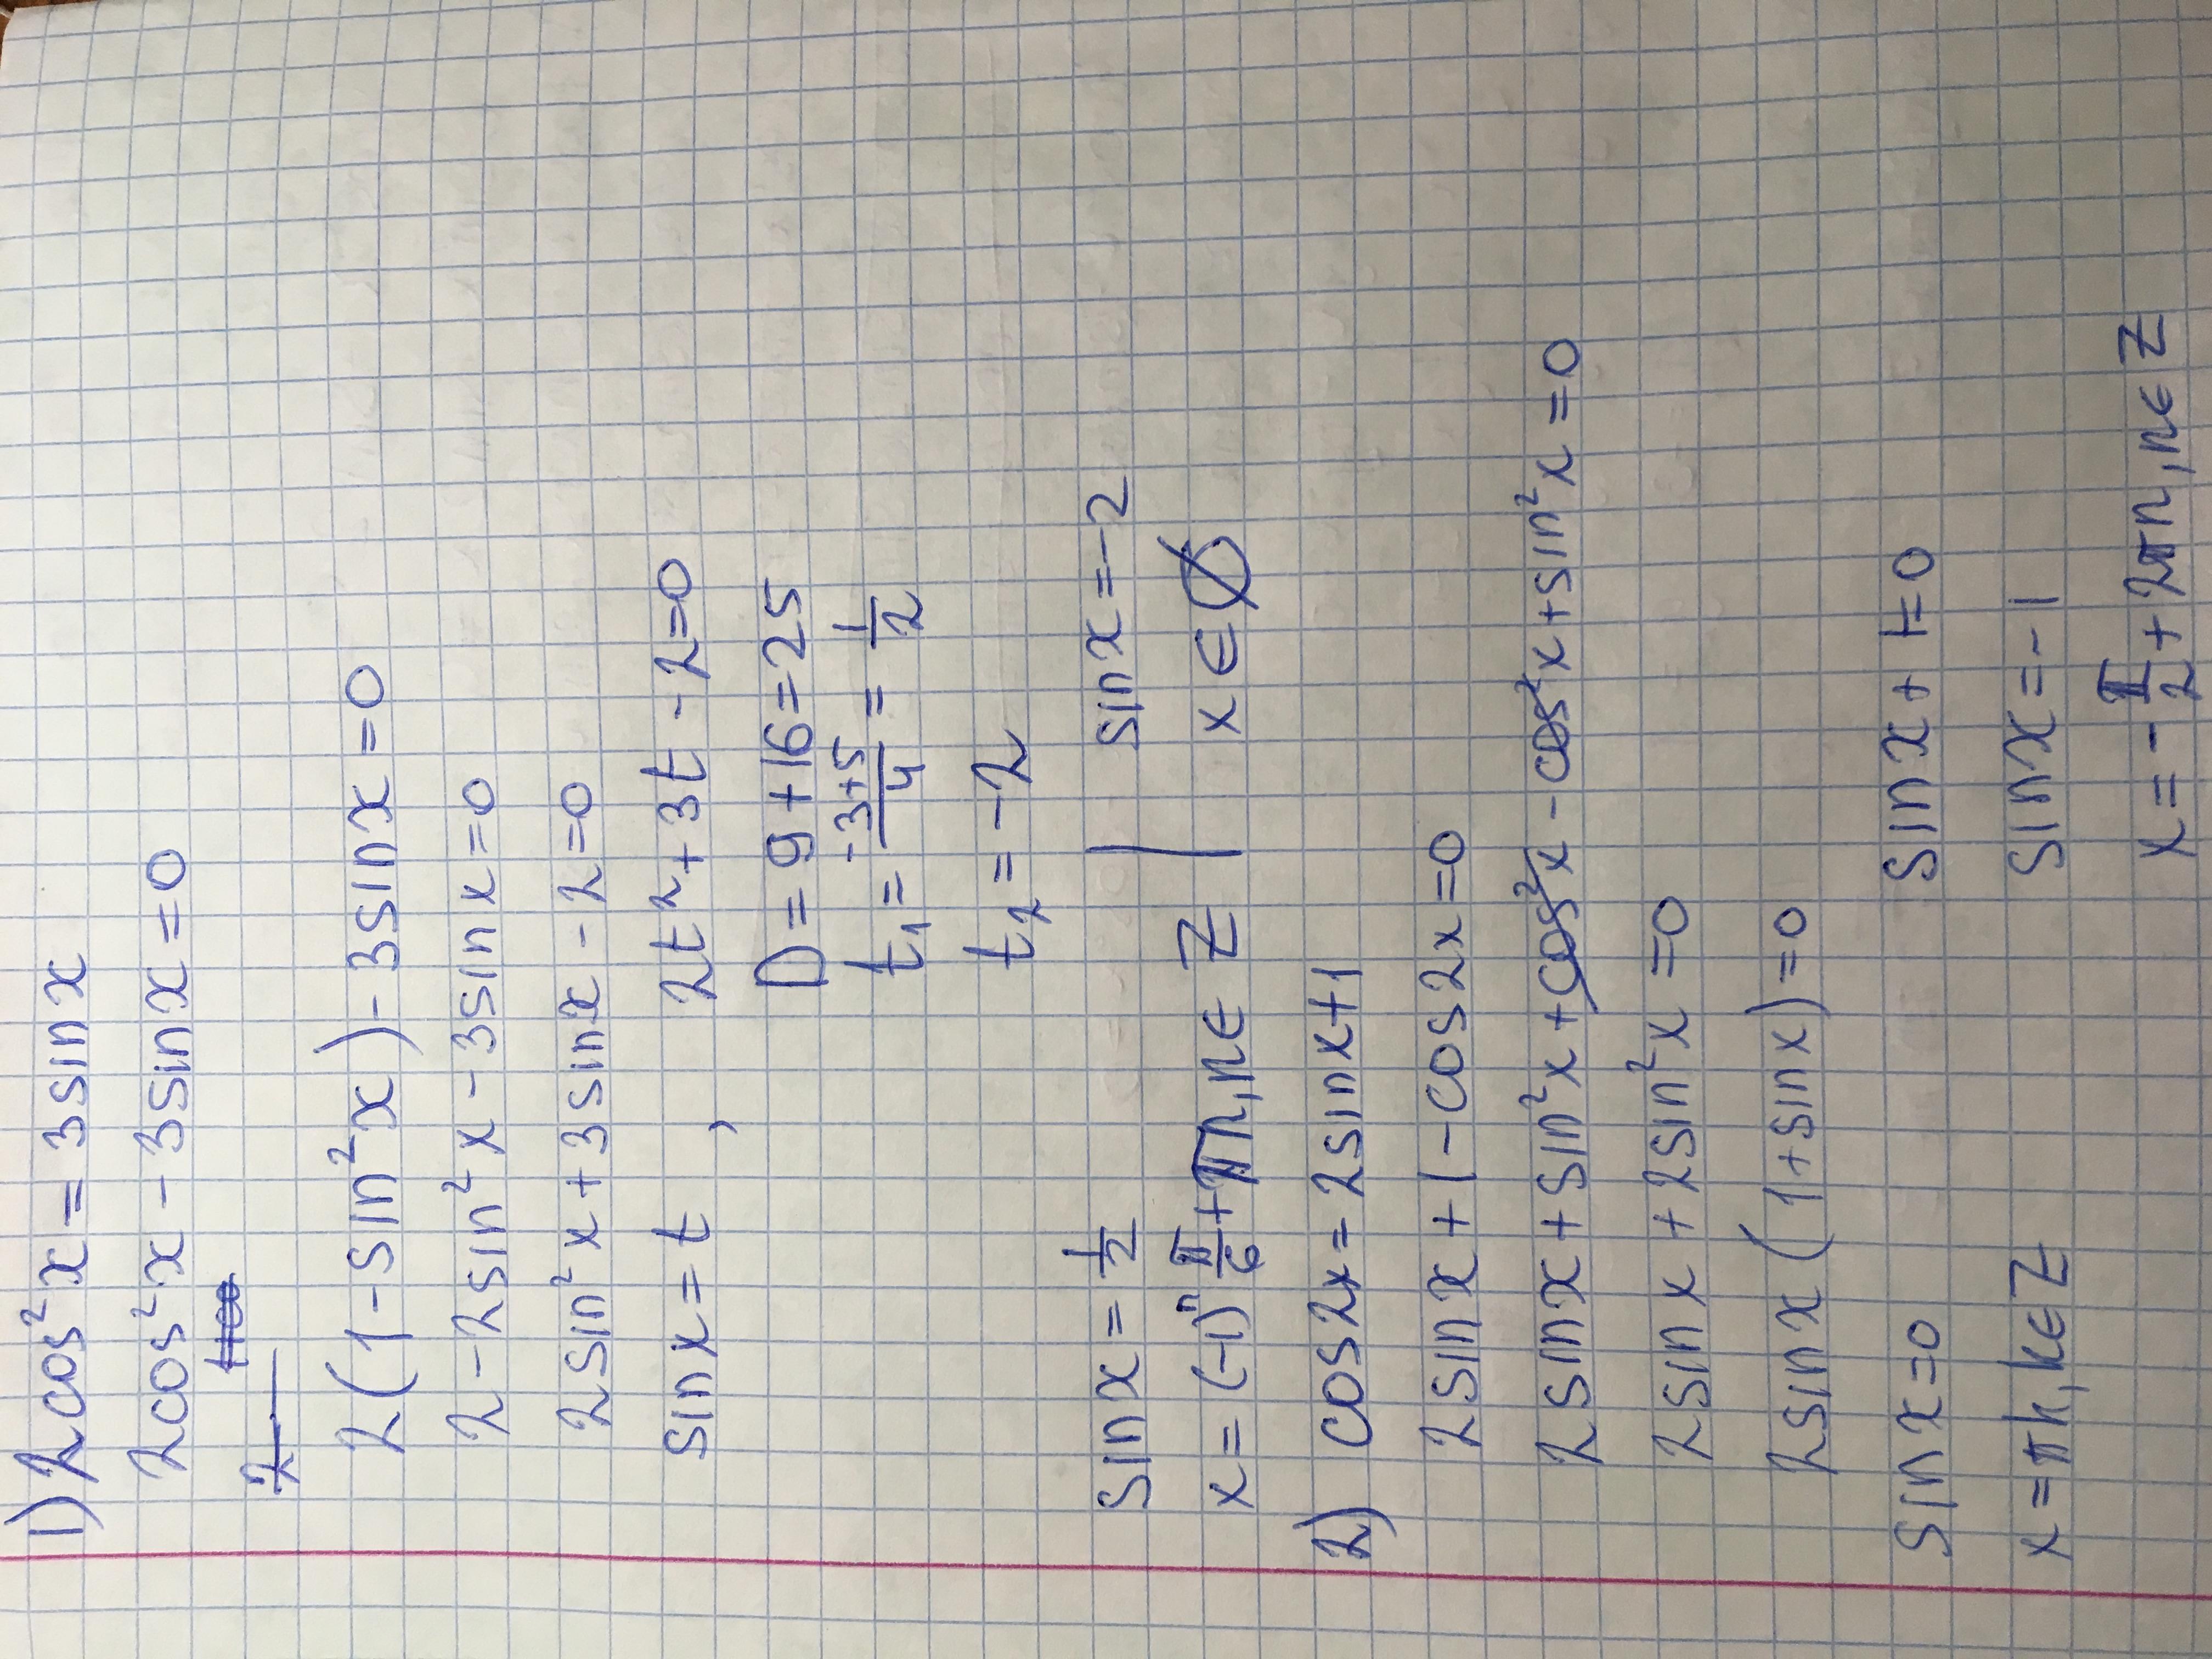 1) 2cos²x = 3sinx
2cos²x - 3sinx = 0
2
2(1-sin²x) - 3sinx = 0
2 - 2sin²x - 3sinx = 0
2sin²x + 3sinx - 2 = 0
sinx = t , 2t² + 3t - 2 = 0
D = 9 + 16 = 25
t₁ = (-3+5)/4 = 1/2
t₂ = -2
sinx = 1/2 | sinx = -2
x = (-1)ⁿ π/6 + πn, n ∈ Z | x ∈ ∅
2) cos2x = 2sinx + 1
2sinx + 1 - cos2x = 0
2sinx + sin²x + cos²x - cos²x + sin²x = 0
2sinx + 2sin²x = 0
2sinx (1 + sinx) = 0
sinx = 0 sinx + 1 = 0
x = πk, k ∈ Z sinx = -1
x = -π/2 + 2πn, n ∈ Z